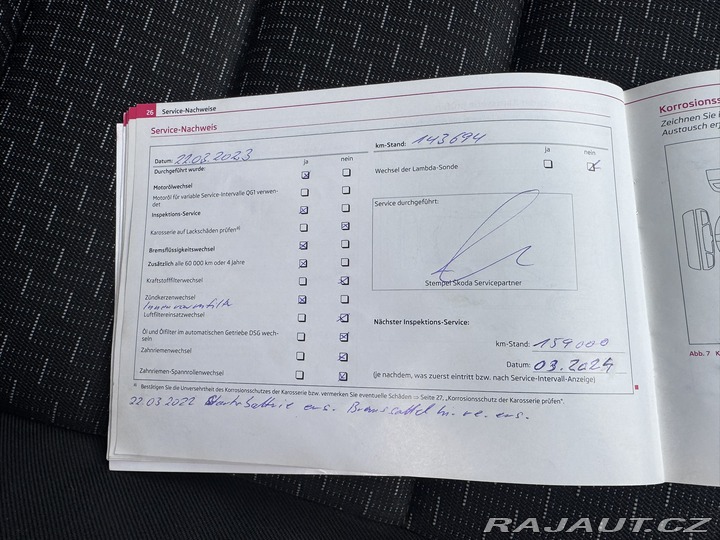 26 Service-Nachweise
Service-Nachweis
Datum: 22.03.2023
ja nein
Durchgeführt wurde:
Motorölwechsel
Motoröl für variable Service-Intervalle QG1 verwen-
det
Inspektions-Service
Karosserie auf Lackschäden prüfen a)
Bremsflüssigkeitswechsel
Zusätzlich alle 60 000 km oder 4 Jahre
Kraftstofffilterwechsel
Zündkerzenwechsel
Innenraumfilter
Luftfiltereinsatzwechsel
Öl und Ölfilter im automatischen Getriebe DSG wech-
seln
Zahnriemenwechsel
Zahnriemen-Spannrollenwechsel
km-Stand: 143694
ja nein
Wechsel der Lambda-Sonde
Service durchgeführt:
Stempel Skoda Servicepartner
Nächster Inspektions-Service:
km-Stand: 159000
Datum: 03.2024
(je nachdem, was zuerst eintritt bzw. nach Service-Intervall-Anzeige)
a) Bestätigen Sie die Unversehrtheit des Korrosionsschutzes der Karosserie bzw. vermerken Sie eventuelle Schäden ⇒ Seite 27, „Korrosionsschutz der Karosserie prüfen“.
22.03.2022 Starterbatterie ern. Bremssattel hi. re. ern.
Korrosionss
Zeichnen Sie i
Austausch er
Abb. 7 K
RAJAUT.CZ